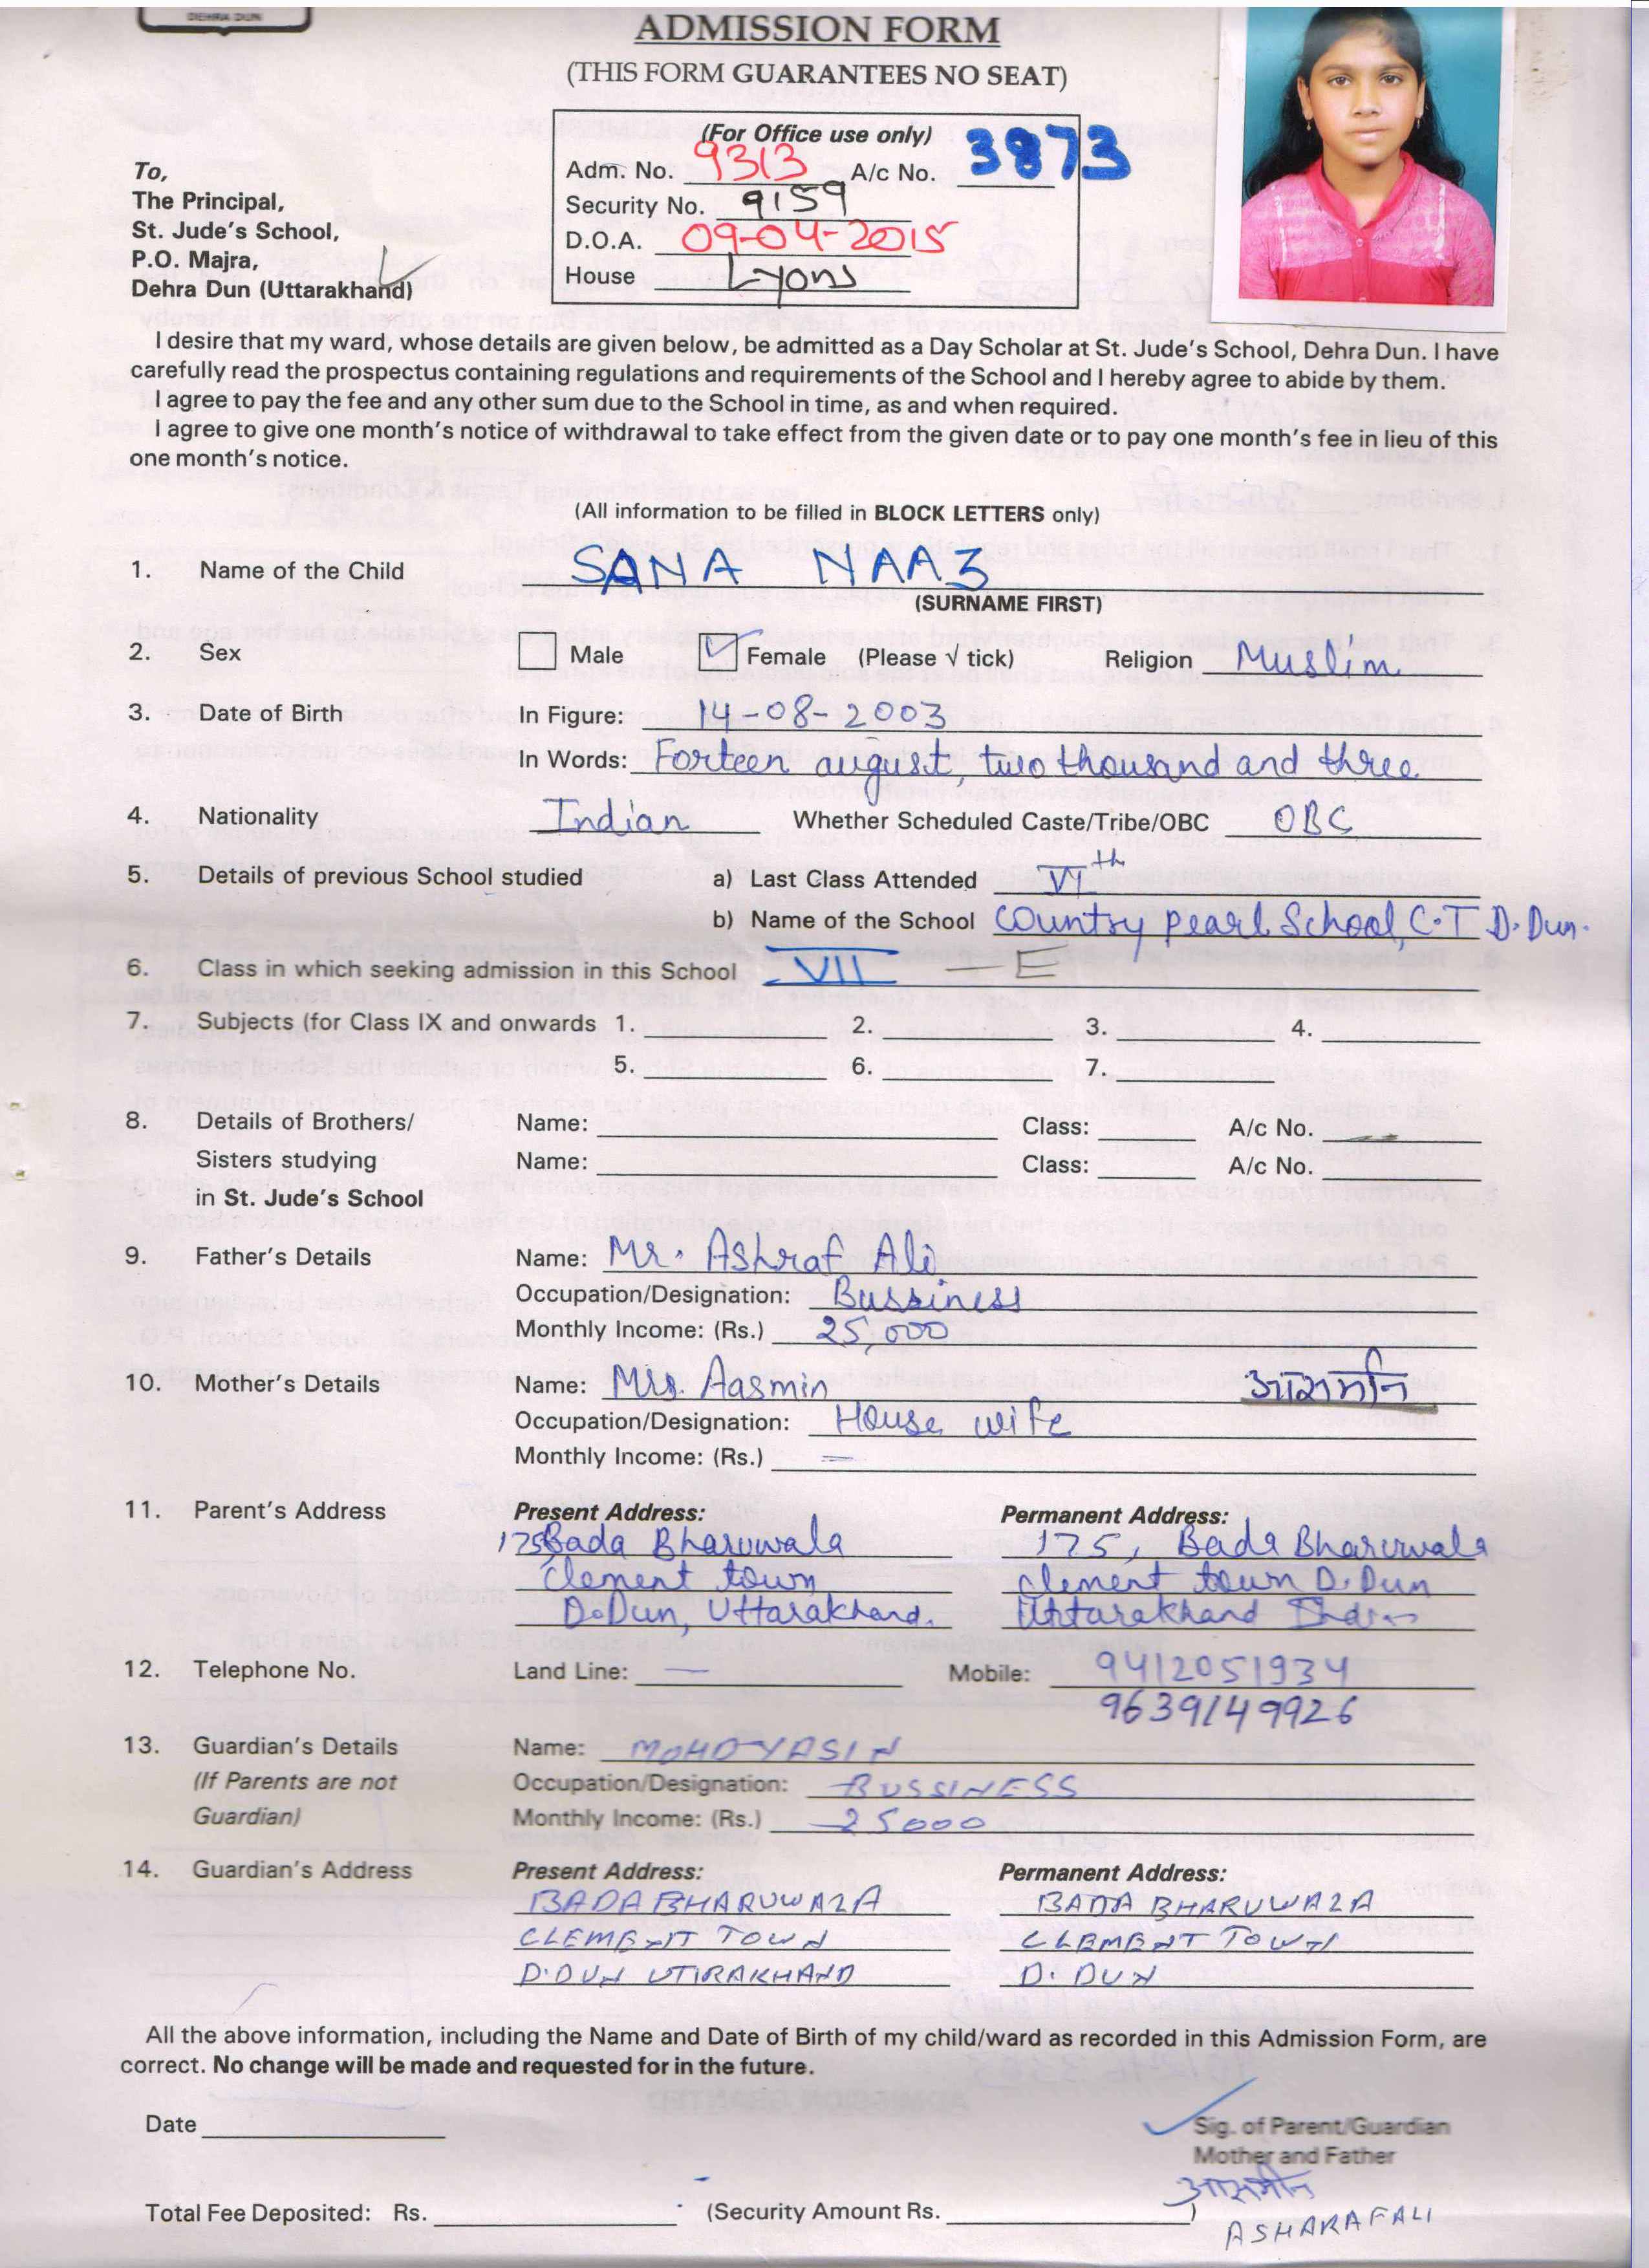 DEHRA DUN
ADMISSION FORM
(THIS FORM GUARANTEES NO SEAT)
(For Office use only)
Adm. No. 9313 A/c No. 3873
Security No. 9159
D.O.A. 09-04-2015
House Lyons
To,
The Principal,
St. Jude's School,
P.O. Majra,
Dehra Dun (Uttarakhand)
I desire that my ward, whose details are given below, be admitted as a Day Scholar at St. Jude's School, Dehra Dun. I have
carefully read the prospectus containing regulations and requirements of the School and I hereby agree to abide by them.
I agree to pay the fee and any other sum due to the School in time, as and when required.
I agree to give one month's notice of withdrawal to take effect from the given date or to pay one month's fee in lieu of this
one month's notice.
(All information to be filled in BLOCK LETTERS only)
1. Name of the Child SANA NAAZ
(SURNAME FIRST)
2. Sex Male Female (Please √ tick) Religion Muslim
3. Date of Birth In Figure: 14-08-2003
In Words: Forteen august, two thousand and three
4. Nationality Indian Whether Scheduled Caste/Tribe/OBC OBC
5. Details of previous School studied a) Last Class Attended VIth
b) Name of the School Country Pearl School, C.T D.Dun.
6. Class in which seeking admission in this School VII - E
7. Subjects (for Class IX and onwards 1. 2. 3. 4.
5. 6. 7.
8. Details of Brothers/ Name: Class: A/c No.
Sisters studying Name: Class: A/c No.
in St. Jude's School
9. Father's Details Name: Mr. Ashraf Ali
Occupation/Designation: Bussiness
Monthly Income: (Rs.) 25,000
10. Mother's Details Name: Mrs. Aasmin
Occupation/Designation: House wife
Monthly Income: (Rs.) —
11. Parent's Address Present Address: Permanent Address:
175 Bada Bharuwala 175, Bada Bharuwala
Clement town Clement town D.Dun
D.Dun, Uttarakhand. Uttarakhand India
12. Telephone No. Land Line: — Mobile: 9412051934
9639149926
13. Guardian's Details Name: MOHD YASIN
(If Parents are not Occupation/Designation: BUSSINESS
Guardian) Monthly Income: (Rs.) 25000
14. Guardian's Address Present Address: Permanent Address:
BADA BHARUWALA BADA BHARUWALA
CLEMENT TOWN CLEMENT TOWN
D.DUN UTIRAKHAND D. DUN
All the above information, including the Name and Date of Birth of my child/ward as recorded in this Admission Form, are
correct. No change will be made and requested for in the future.
Date
Sig. of Parent/Guardian
Mother and Father
Total Fee Deposited: Rs. (Security Amount Rs. )
ASHARAFALI